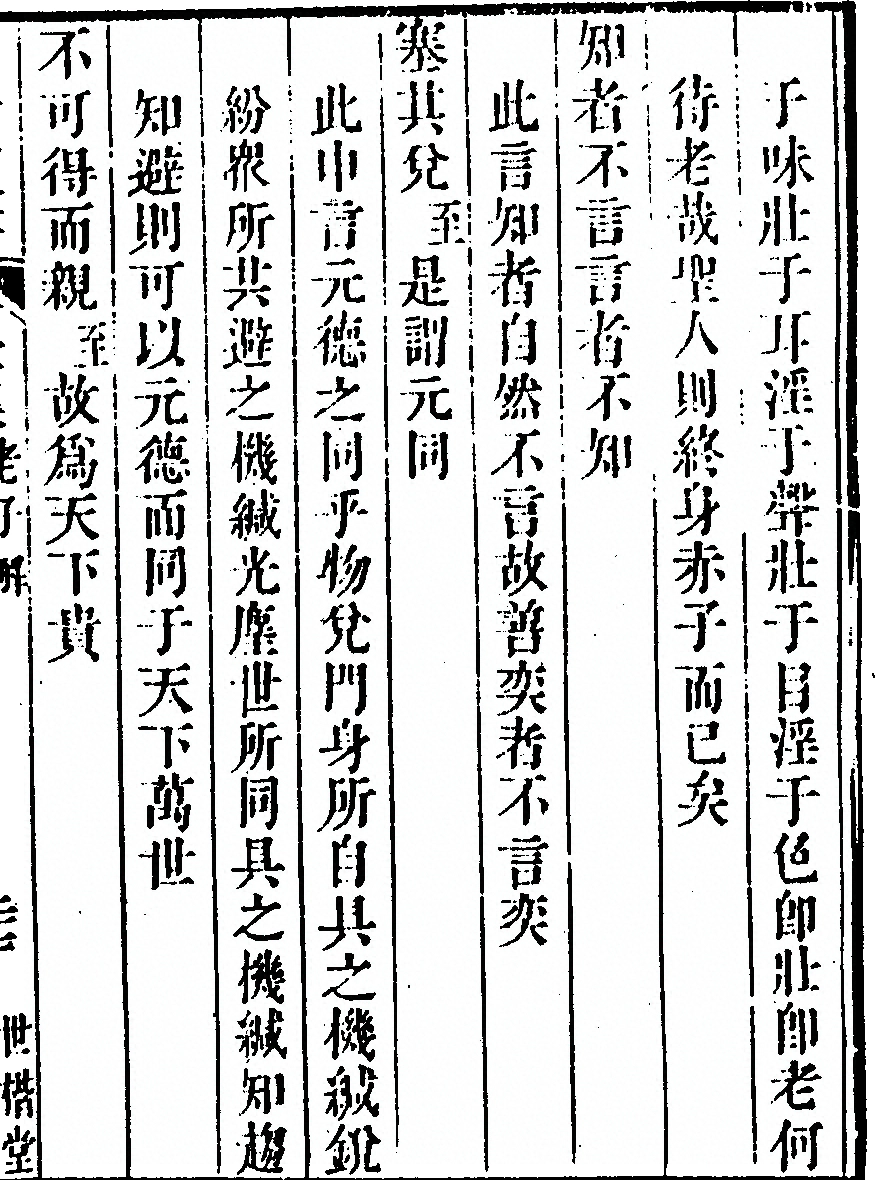 于味壯于耳淫于聲壯于目淫于色卽壯卽老何
待老故聖人則終身赤子而已矣
知者不言言者不知
此言知者自然不言故善奕者不言奕
塞其兌至是謂元同
此申言元德之同乎物兌門身所自具之機緘銳
紛衆所共避之機緘光塵世所同具之機緘知趨
知避則可以元德而同于天下萬世
不可得而親至故爲天下貴
老子解
世楷堂